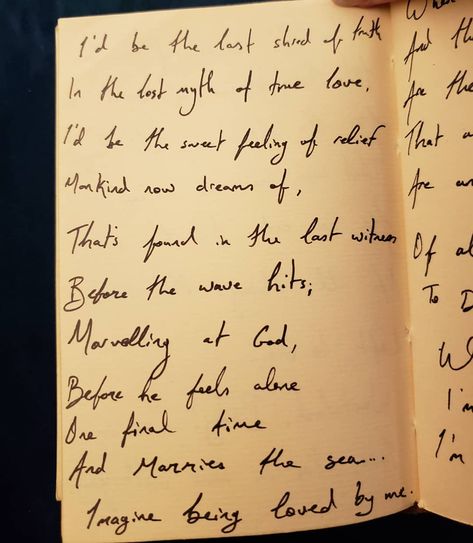 I'd be the last shred of truth
In the lost myth of true love,
I'd be the sweet feeling of relief
Mankind now dreams of,
That's found in the last witness
Before the wave hits;
Marvelling at God,
Before he feels alone
One final time
And Marries the sea...
Imagine being loved by me.
When
And the
Are the
That a
Are
Of al
To D
W
I'm
I'm